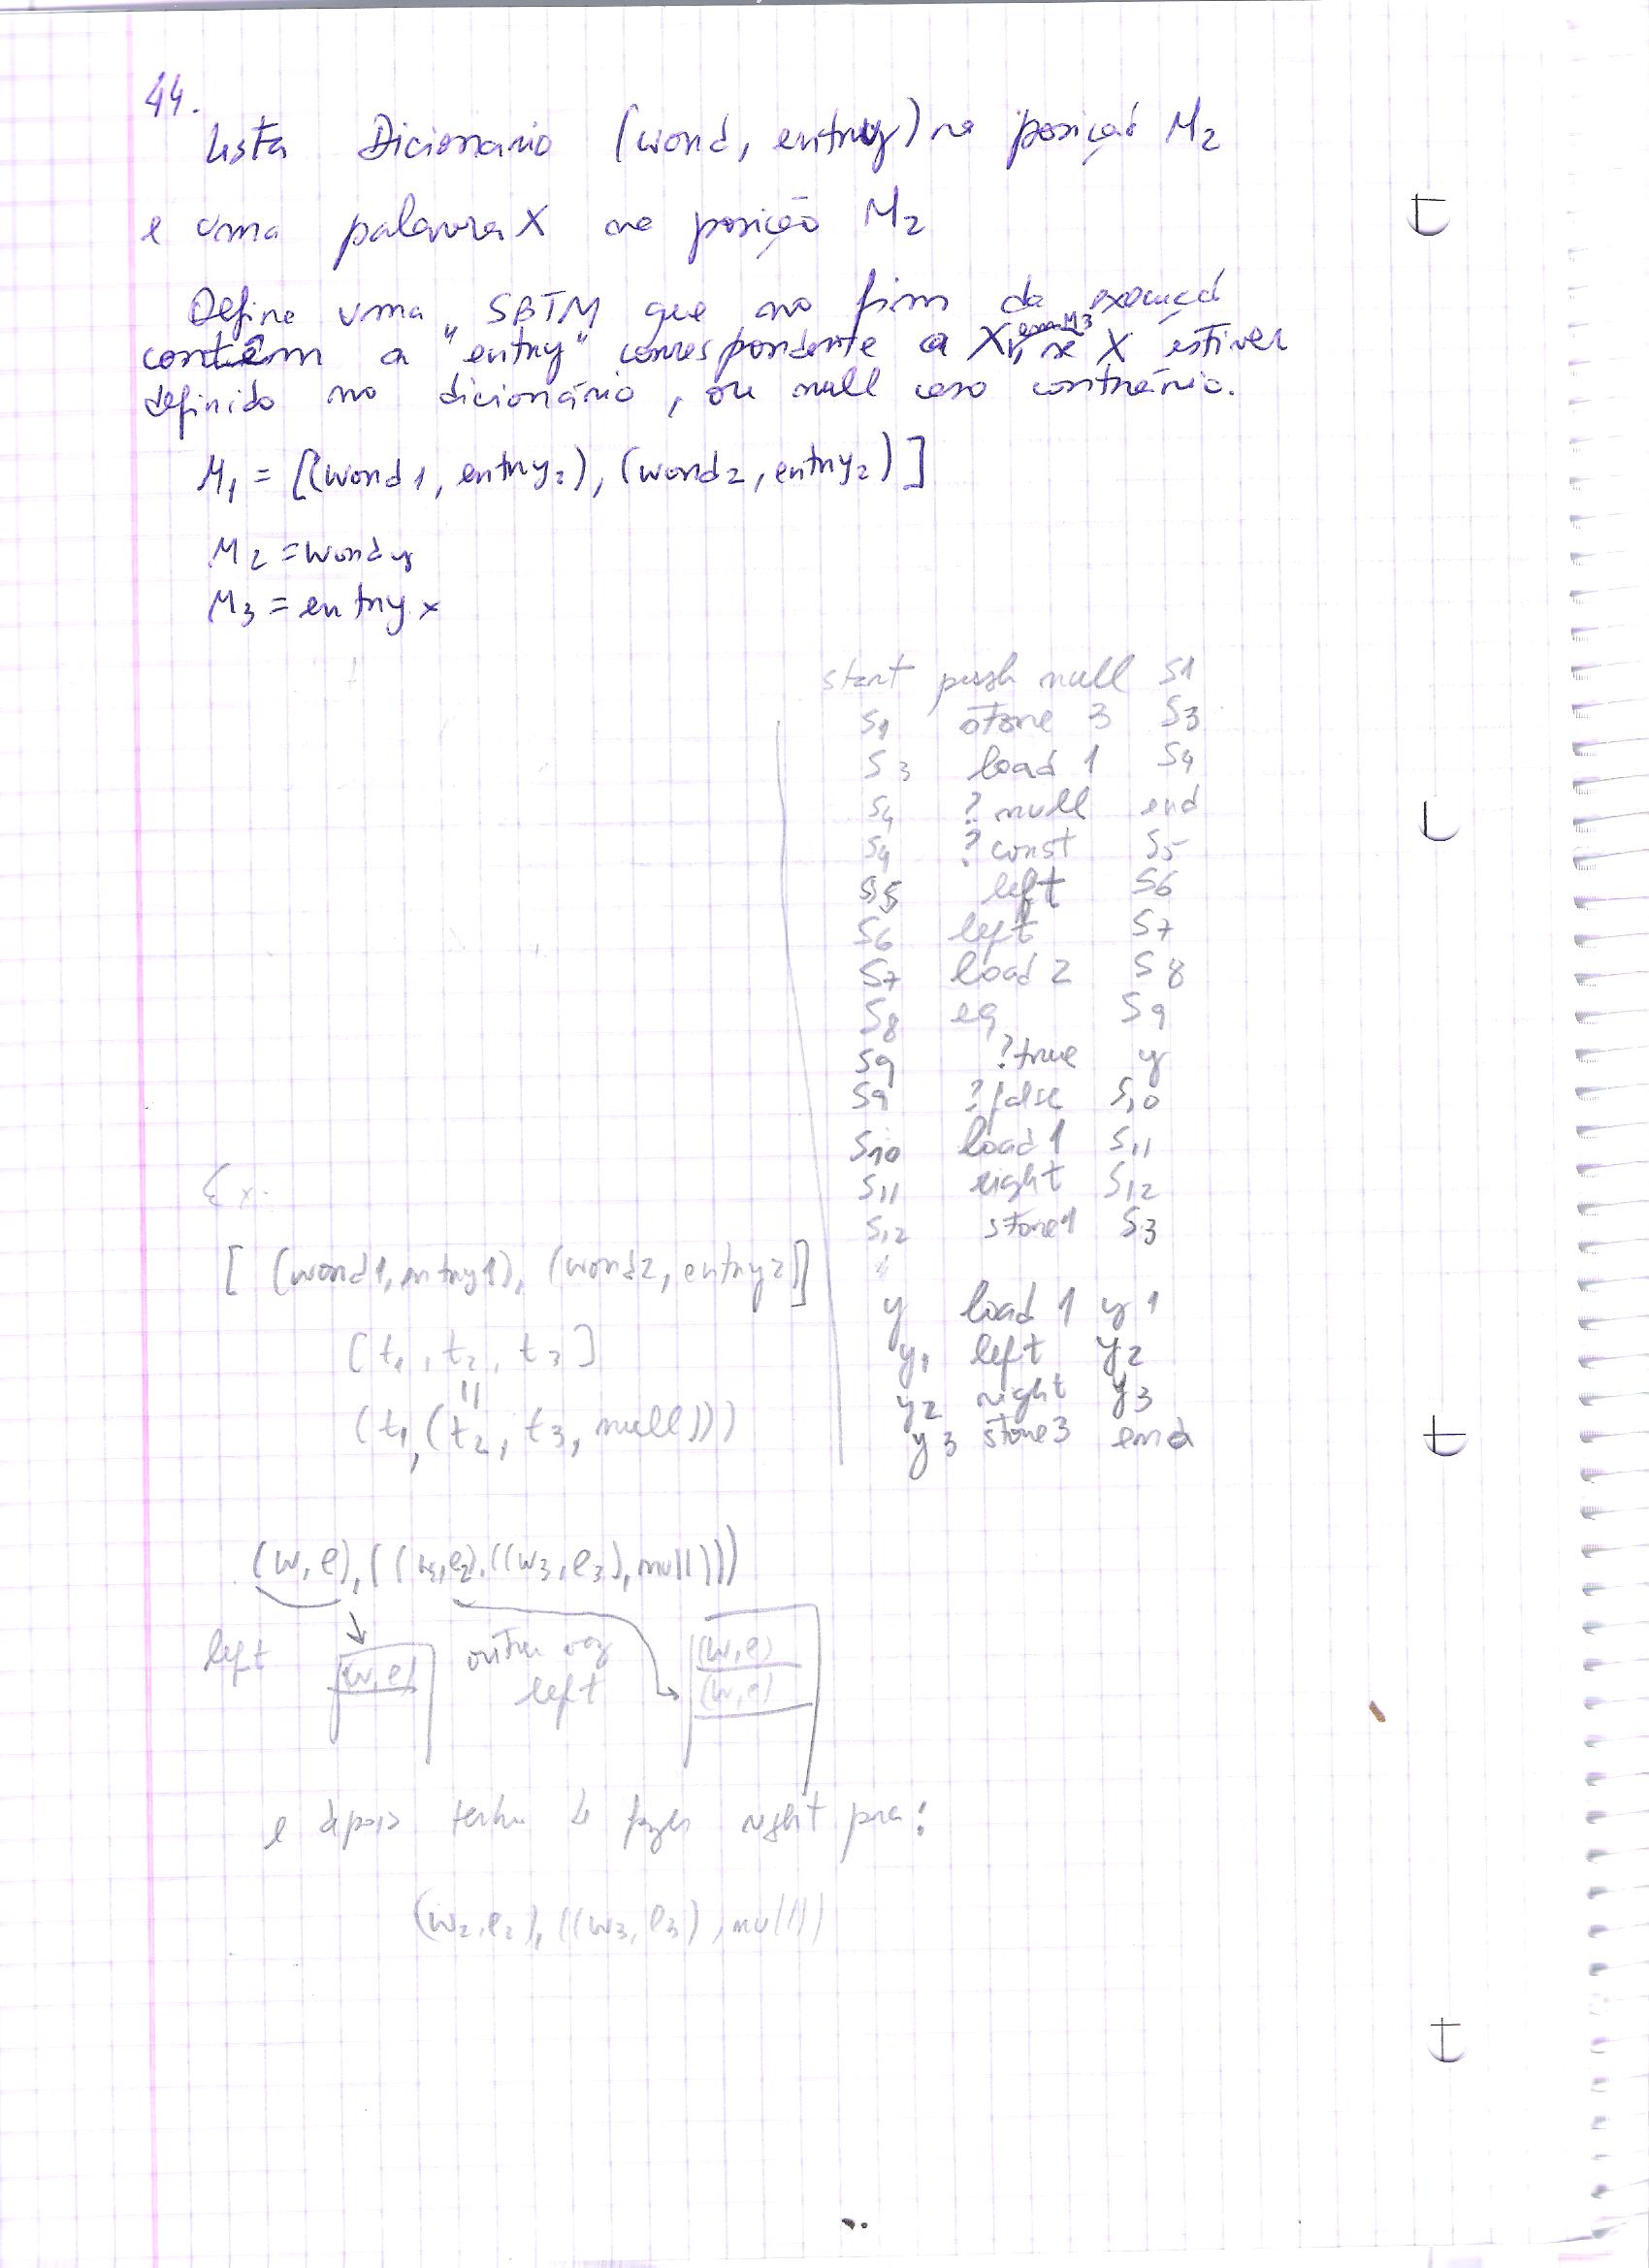 44.
Lista Dicionario (word, entry) na posição M2
e uma palavra X na posição M2
Define uma "SBTM que no fim da execuçã
contêm a "entry" correspondente a X, em M3 se X estiver
definido no dicionário, ou null caso contrário.
M1 = [(word1, entry2), (word2, entry2)]
M2 = word
M3 = entry x
start push null S1
S1 store 3 S3
S3 load 1 S4
S4 ? null end
S4 ? const S5
S5 left S6
S6 left S7
S7 load 2 S8
S8 eq S9
S9 ? true y
S9 ? false S10
S10 load 1 S11
S11 right S12
S12 store 1 S3
y load 1 y1
y1 left y2
y2 right y3
y3 store 3 end
Ex:
[(word1, entry1), (word2, entry2)]
[t1, t2, t3]
=
(t1, (t2, t3, null)))
(w, e), ((w2, e2), ((w3, e3), null)))
left (w, e) outra vez left (w, e) (w, e)
e depois tenho de fazer right pra:
(w2, e2), ((w3, e3), null))